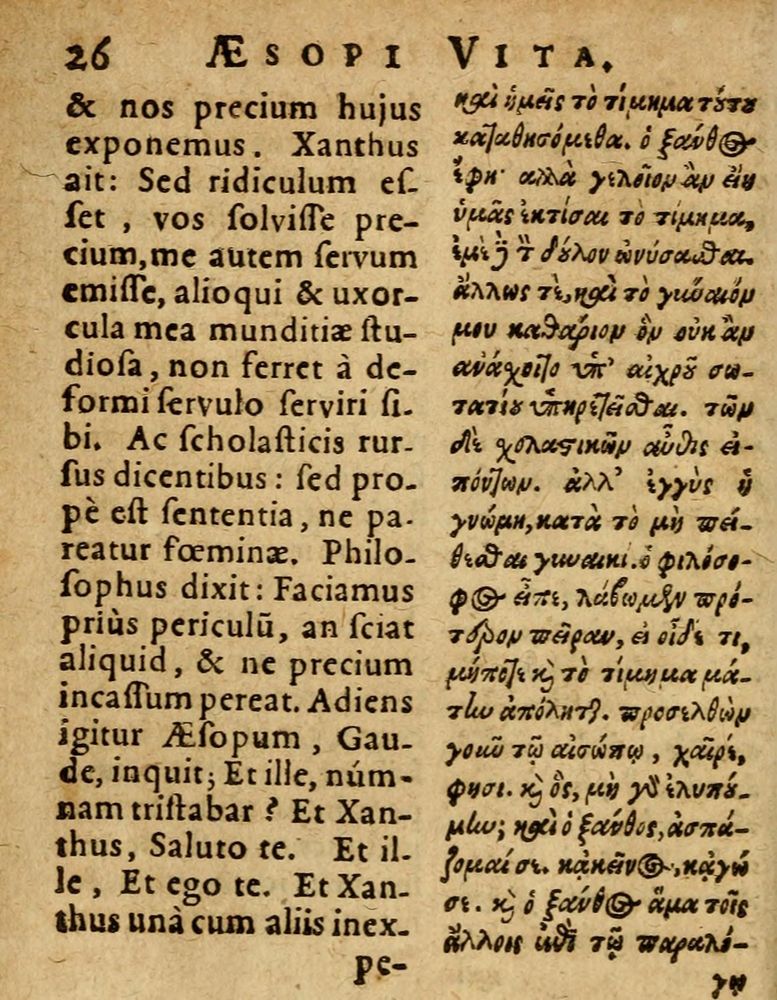 26 ÆSOPI VITA.
& nos precium hujus
exponemus. Xanthus
ait: Sed ridiculum eſ-
ſet, vos ſolviſſe pre-
cium, me autem ſervum
emiſſe, alioqui & uxor-
cula mea munditiæ ſtu-
dioſa, non ferret à de-
formi ſervulo ſerviri ſi-
bi. Ac ſcholaſticis rur-
ſus dicentibus: ſed pro-
pè eſt ſententia, ne pa-
reatur fœminæ. Philo-
ſophus dixit: Faciamus
priùs periculū, an ſciat
aliquid, & ne precium
incaſſum pereat. Adiens
igitur Æſopum, Gau-
de, inquit; Et ille, núm-
nam triſtabar? Et Xan-
thus, Saluto te. Et il-
le, Et ego te. Et Xan-
thus unà cum aliis inex-
pe-
καὶ ὑμεῖς τὸ τίμημα τȣ́τȣ
καταθησόμεθα. ὁ ξάνθος
ἔφη· ἀλλὰ γελοῖον ἂν εἴη
ὑμᾶς ἐκτίσαι τὸ τίμημα,
ἐμὲ δὲ τὸν δȣ͂λον ὠνήσασθαι.
ἄλλως τε, καὶ τὸ γυναιόν
μου καθάριον ὂν οὐκ ἂν
ἀνάχοιτο ὑπ' αἰχρȣ͂ σω-
ματίȣ ὑπηρετεῖσθαι. τῶν
δὲ χολαστικῶν αὖθις εἰ-
πόντων. ἀλλ' ἐγγὺς ἡ
γνώμη, κατὰ τὸ μὴ πεί-
θεσθαι γυναικί. ὁ φιλόσο-
φος εἶπε, λάβωμεν πρό-
τερον πεῖραν, εἰ οἶδέ τι,
μήποτε καὶ τὸ τίμημα μά-
την ἀπόληται. προσελθὼν
γοῦν τῷ αἰσώπῳ, χαῖρε,
φησι. καὶ ὃς, μὴ γὰρ ἐλυπȣ́-
μην; καὶ ὁ ξάνθος, ἀσπά-
ζομαί σε. κἀκεῖνος, κᾀγώ
σε. καὶ ὁ ξάνθος ἅμα τοῖς
ἄλλοις ἐπὶ τῷ παραλό-
γῳ